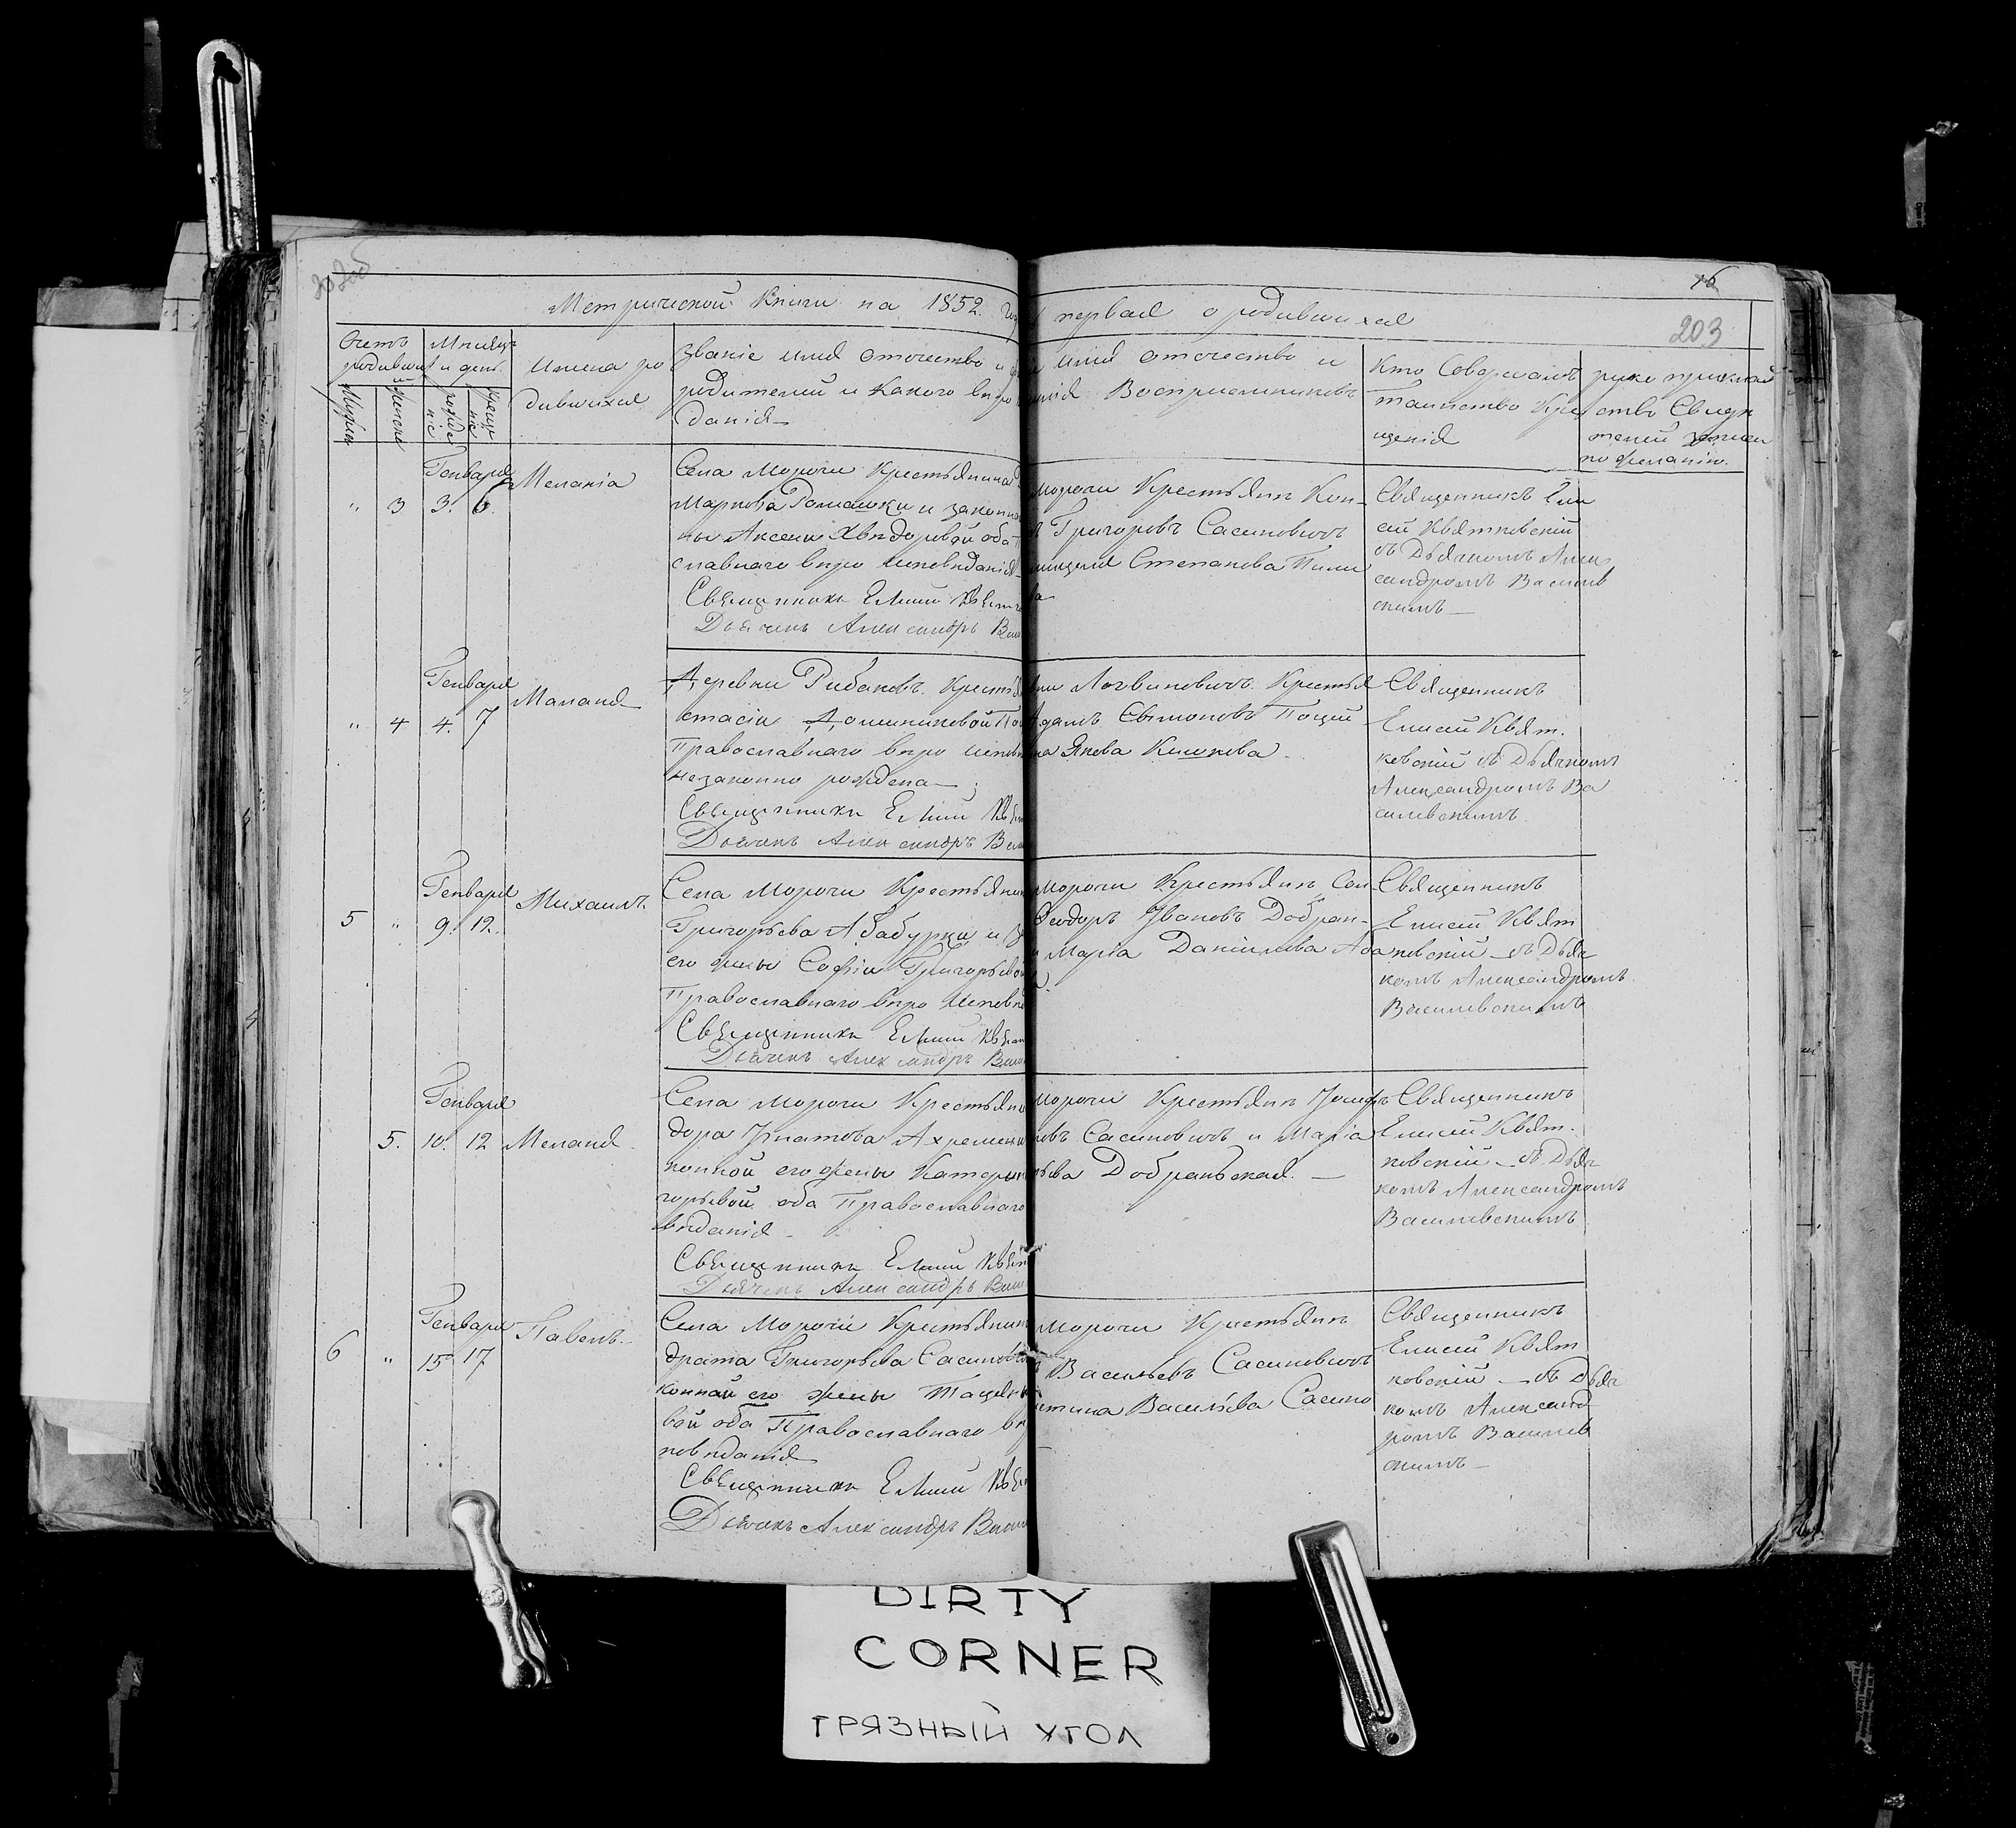 Метрической Книги на 1852.
первая о родившихся
16
203
Счетъ
родивши
Месяцъ
и день.
Мужеска
Женска
рожде
ніе
Креще
ніе
Имена ро
дившихся
Званіе имя отечество и
родителей и какого веро
данія
имя отечество и
Воспріемниковъ
Кто Совершалъ
таинство Кре
щенія
руко приклад
ство Свиде
телей записи
по желанію.
" 3
Генваря
3. 6.
Меланія
Села Морочи Крестьянина
Маркова Ромашки и законно
ны Аксени Хведоровой оба
славнаго веро исповеданія
Священникъ Елисий
Дьячекъ Александръ
Морочи Крестьянъ Кон-
Григоровъ Сасиновичъ
Степанова
ва
Священникъ Ели
сей Квятковскій
съ Дьячкомъ Алек
сандромъ Василев
скимъ
" 4
Генваря
4. 7
Маланя
Деревни Рибаковъ Крестья
стасіи
Православнаго веро испов
незаконно рождена
Священникъ Елисий
Дьячекъ Александръ
Логвиновичъ Крестья
Адамъ Семіоновъ Поций
на Якова Кишкева
Священникъ
Елисей Квят.
ковскій съ Дьячкомъ
Александромъ Ва
силевскимъ
5 "
Генваря
9. 12.
Михаилъ.
Села Морочи Крестьянин
Григорьева Абабурки и
его жены Софіи Григорьевой
Православнаго веро Исповед
Священникъ Елисий
Дьячекъ Александръ
Морочи Крестьянъ
Феодоръ Ивановъ Добран-
Марія Данилова Аба
Священникъ
Елисей Квят
ковскій съ Дьяч
комъ Александромъ
Василевскимъ
5.
Генваря
10. 12
Меланя
Села Морочи Крестьяни
дора Игнатова Ахремчи
конной его жены Катери
горьевой оба Православнаго
веданія
Священникъ Елисий
Дьячекъ Александръ
Морочи Крестьянъ Іосифъ
овъ Сасиновичъ и Марія
рьева Добранская.
Священникъ
Елисей Квят.
ковскій съ Дьяч
комъ Александромъ
Василевскимъ
6 "
Генваря
15. 17
Павелъ.
Села Морочи Крестьянин
драта Григорьева Сасинови
конной его жены Тацяны
вой оба Православнаго ве
поведанія
Священникъ Елисий
Дьячекъ Александръ
Морочи Крестьянъ
Васильевъ Сасиновичъ
стина Василева Сасино
Священникъ
Елисей Квят
ковскій съ Дьяч
комъ Александ
ромъ Василев
скимъ
DIRTY
CORNER
ГРЯЗНЫЙ УГОЛ